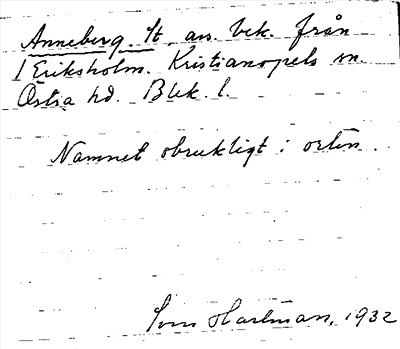 Anneberg. lt, avs. bek. från
1 Eriksholm. Kristianopels sn.
Östra hd. Blek. l.
Namnet obrukligt i orten.
Hartman, 1932